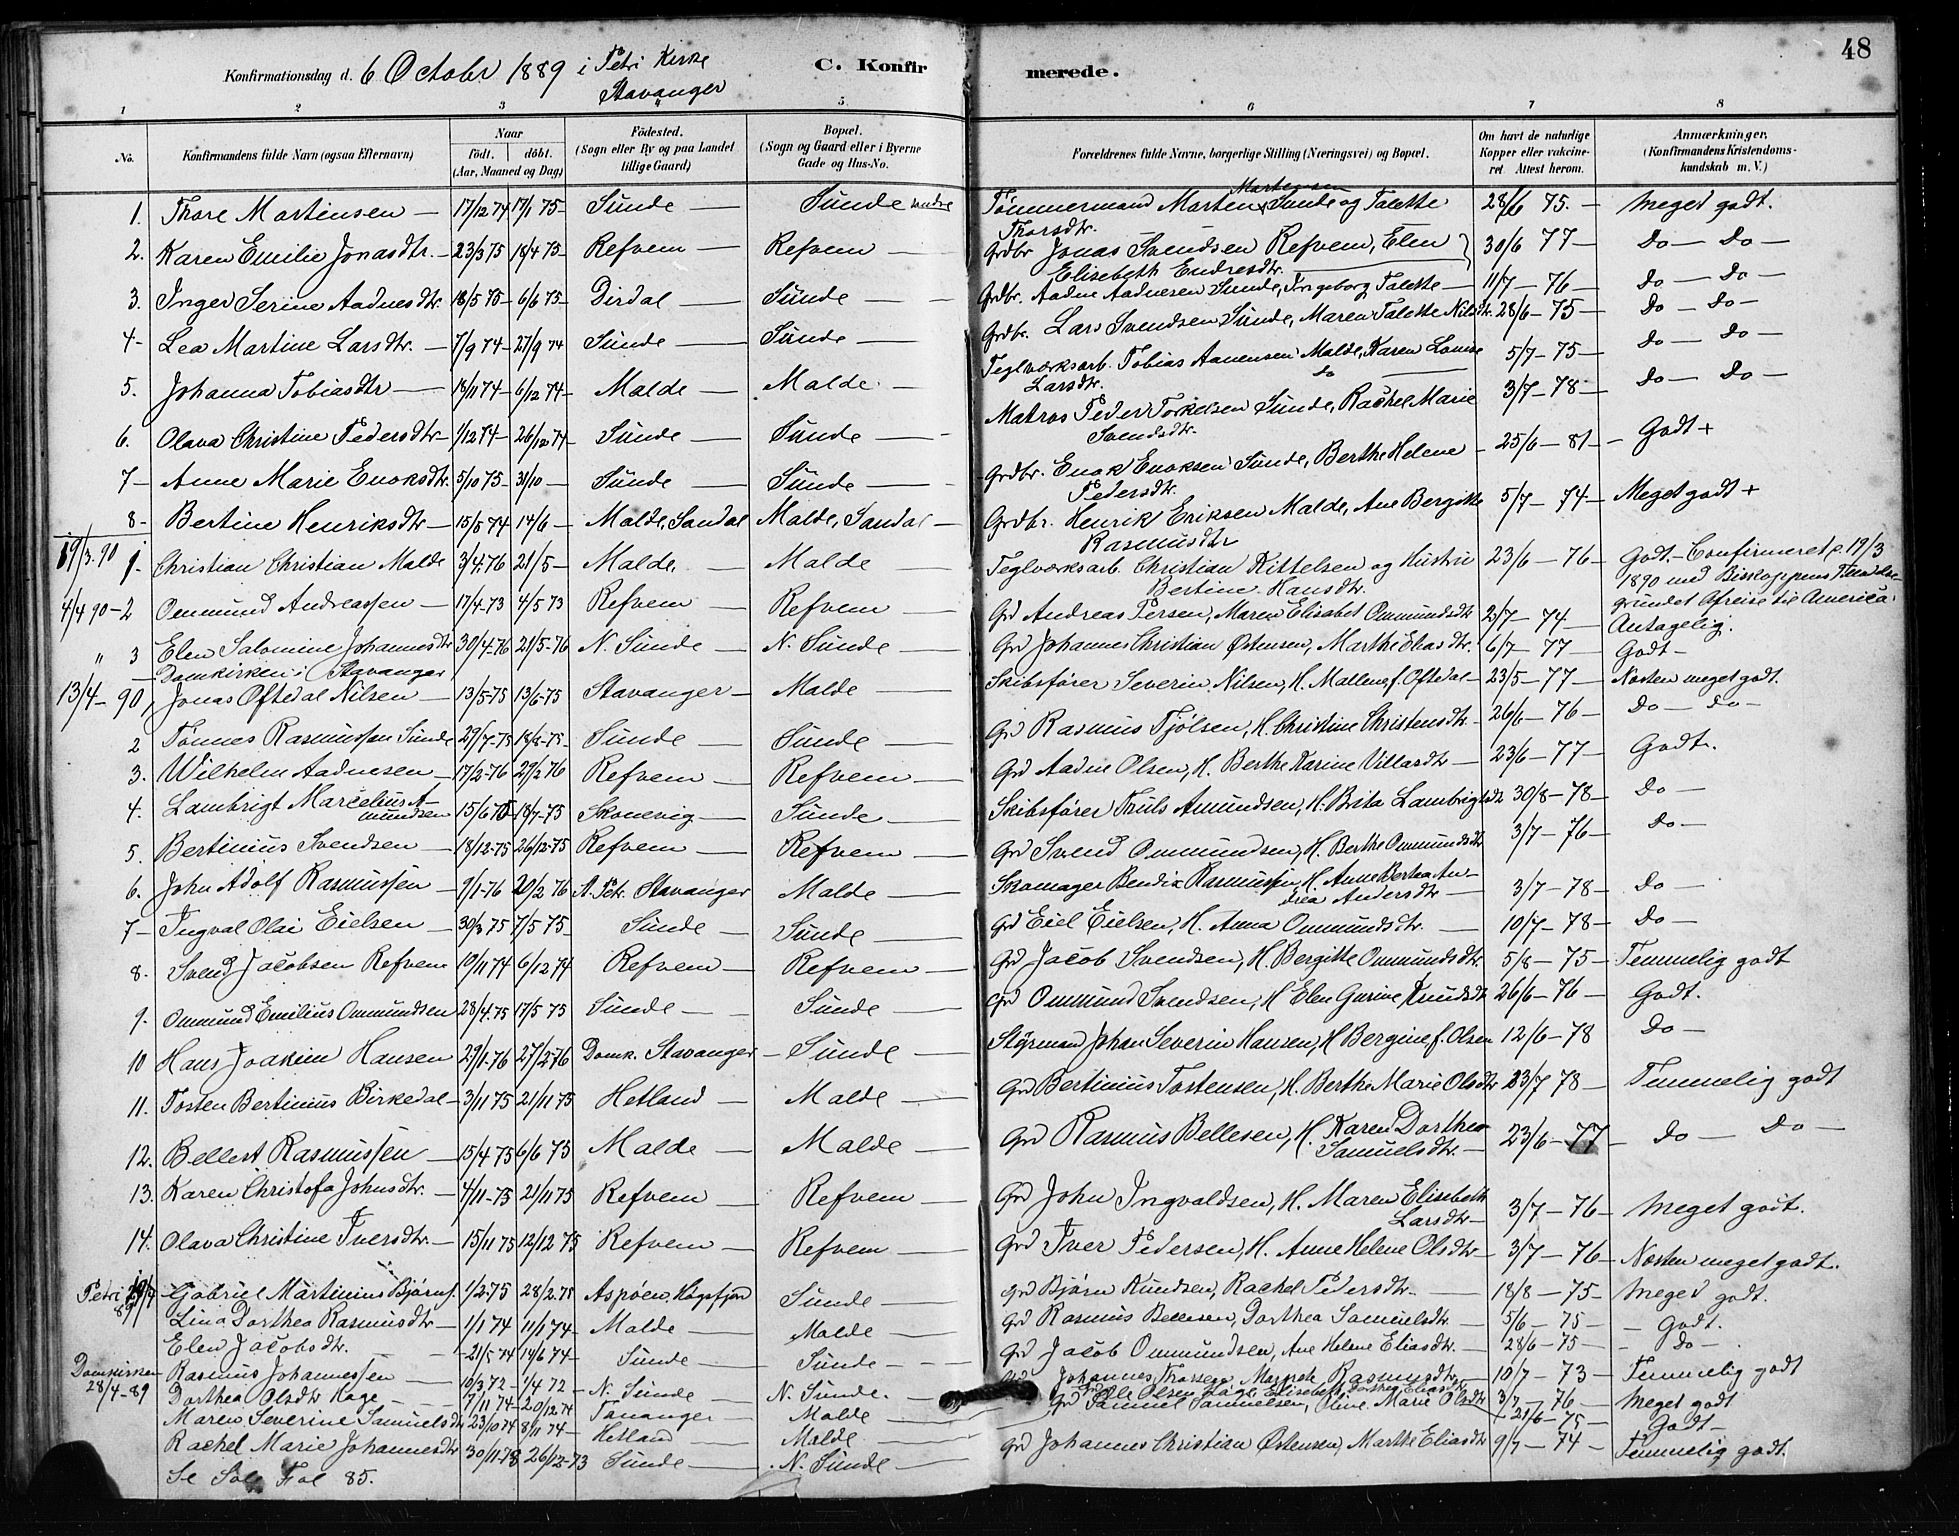 48
Konfirmationsdag d. 6 October 1889 i Petri Kirke
Stavanger
C. Konfirmerede.
1 2 3 4 5 6 7 8
No. Konfirmandens fulde Navn (ogsaa Efternavn) Naar Født. døbt. (Aar, Maaned og Dag) Födested. (Sogn eller By og paa Landet tillige Gaard) Bopæl. (Sogn og Gaard eller i Byerne Gade og Hus-No. Forældrenes fulde Navne, borgerlige Stilling (Næringsvei) og Bopæl. Om havt de naturlige Kopper eller vakcineret. Attest herom. Anmærkninger. (Konfirmandens Kristendomskundskab m. V.)
1. Thore Martinsen — 17/12 74 17/1 75 Sunde — Sunde Tømmermand Morten Mortensen Sunde og Talette Thorsdtr. 28/6 75. — Meget godt.
2. Karen Emilie Jonasdtr. — 23/3 75 18/4 75 Refvem — Refvem — Grdbr Jonas Svendsen Refvem, Elen Elisebeth Endresdtr. 30/6 77 — Do — Do —
3. Inger Serine Aadnesdtr. 18/5 75 6/6 75 Dirdal — Sunde — Grdbr. Aadne Aadnesen Sunde, Ingeborg Talette — 11/7 — 76 — Do — Do —
4 - Lea Martine Larsdtr. — 7/9 74 27/9 74 Sunde — Sunde — Grdbr. Lars Svendsen Sunde, Maren Talette Nilsdtr. 28/6 — 75 — Do — Do —
5. Johanna Tobiasdtr — 18/11 74 6/12 74 Malde — Malde — Teglværksarb. Tobias Aanensen Malde, Karen Lovise Larsdtr. do 5/7 — 75 — Do — Do
6. Olava Christine Pedersdtr — 1/12 74 26/12 74 Sunde — Sunde — Matros Peder Torkelsen Sunde, Rachel Marie Svendsdtr. 3/7 — 78 — Do — Do —
7 - Anne Marie Enoksdtr. 5/10 75 31/10 — Sunde — Sunde — Grdbr. Enok Enoksen Sunde, Berthe Helene Pedersdtr. 25/6 — 81 — Godt +
8 - Bertine Henriksdtr — 15/5 74 14/6 — Malde, Sandal Malde, Sandal — Grdbr. Henrik Eriksen Malde, Ane Bergitte Rasmusdtr 5/7 — 74 — Meget godt +
19/3. 90 1. Christian Christian Malde 3/4 76 21/5 — Malde — Malde — Teglværksarb. Christian Kittelsen og Hustru Bertine Hansdtr. 23/6 — 76 — Godt. — Confirmeret d. 19/3 1890 med Biskoppens Tilladelse grundet Afreise til America.
4/4 90 - 2 Ommund Andreassen — 17/4 73 4/5 73 Refvem — Refvem — Grd Andreas Persen, Maren Elisabet Ommundsdtr 2/7 — 74 — Antagelig.
" 3 Elen Salomine Johannesdtr 30/4 76 21/5 - 76 N. Sunde — N. Sunde — Grd Johannes Christian Østensen, Marthe Eliasdtr. 6/7 — 77 — Godt —
Domkirken i Stavanger
13/4 - 90, Jonas Oftedal Nilsen — 13/5 - 75 13/6 - 75 Stavanger — Malde — Skibsfører Severin Nilsen, H. Mallene f. Oftedal — 23/5 — 77 — Næsten meget godt.
2 Tønnes Rasmussen Sunde 29/7 - 75 Sunde — Sunde — Grd Rasmus Tjølsen, H. Christine Christensdtr — 26/6 — 76 — Do — Do —
3. Wilhelm Aadnesen — 17/2 - 76 27/2 76 Refvem — Refvem — Grd Aadne Olsen, H. Berthe Karine Villasdtr — 23/6 — 77 — Godt.
4. Lambrigt Marcelius Amundsen 15/6 75 18/7 - 75 Skonevig — Sunde — Skibsfører Truls Amundsen, H. Brita Lambrigtsdtr 30/8 — 78 — Do —
5. Bertinius Svendsen — 18/12 - 75 26/12 - 75 Refvem — Refvem — Grd Svend Ommundsen, H. Berthe Ommundsdtr 3/7 — 76 — Do —
6. John Adolf Rasmussen — 9/1 - 76 20/2 76 Petr. Stavanger Malde — Skomager Bendix Rasmussen, H. Anne Bertea Andrea Andersdtr — 3/7 — 78 — Do —
7 - Ingval Olai Eielsen — 30/3 75 7/5 75 Sunde — Sunde — Grd Eiel Eielsen, H. Anna Ommundsdtr. — 10/7 — 78 — Do —
8. Svend Jacobsen Refvem 10/11 74 6/12 74 Refvem — Refvem — Grd Jacob Svendsen, H. Bergitte Ommundsdtr. 5/8 — 75 — Temmelig godt
9. Ommund Emilius Ommundsen 28/4 75 17/5 75 Sunde — Sunde — Grd Ommund Svendsen, H Elen Gurine Knudsdtr 26/6 — 76 — Godt.
10 Hans Joakim Hansen 29/1 - 76 27/2 76 Domk. Stavanger — Sunde — Styrmand Johan Severin Hansen, H Bergine f. Olsen 12/6 — 78 Do —
11. Tosten Bertinius Birkedal — 3/11 75 21/11 75 Hetland — Malde — Grd Bertinius Tostensen, H. Berthe Marie Olsdtr 23/7 78 — Temmelig godt
12. Bellest Rasmussen — 15/4 75 6/6 75 Malde — Malde — Grd Rasmus Bellesen, H. Karen Dorthea Samuelsdtr. — 23/6 — 77 — Do — Do —
13. Karen Christofa Johnsdtr. — 4/11 - 75 21/11 75 Refvem — Refvem — Grd John Ingvaldsen, H. Maren Elisebeth Larsdtr — 3/7 — 76 — Meget godt.
14. Olava Christine Iversdtr. — 15/11 75 12/12 75 Refvem — Refvem — Grd Iver Pedersen, H. Anne Helene Olsdtr — 3/7 — 76 — Næsten meget godt.
Petri Gabriel Martinius Bjørns. 1/2 75 28/2 75 Aspøen, Høgsfjord Sunde — Grd Bjørn Knudsen, Rachel Pedersdtr. — 18/8 — 75 — Meget godt.
Lina Dorthea Rasmusdtr — 1/1 74 11/1 74 — Malde — Malde — Grd Rasmus Bellesen, Dorthea Samuelsdtr. — 5/6 — 75 — Godt.
Elen Jacobsdtr. — 21/5 74 14/6 74 — Sunde — Sunde — Grd Jacob Ommundsen, Ane Helene Eliasdtr. — 28/6 — 75 — Do —
Domkirken 28/4 - 89 Rasmus Johannessen — 10/3 72 — 1/4 72 — N. Sunde — N. Sunde. — Johannes Thorsen, Margrete Rasmusdtr — 10/7 — 73 — Temmelig godt
Dorthea Olsdtr Hage — 7/11 74 — 20/12 74 Tananger — Malde — Ole Olsen Hage, Elisebeth Dorthea Eliasdtr 3/7 — 76 — Meget godt
Maren Severine Samuelsdtr 23/10 74 8/11 74 — Hetland — Malde — Grd Samuel Samuelsen, Oline Marie Olsdtr 21/6 — 75 — Godt —
Rachel Marie Johannesdtr 30/11 - 73 26/12 - 73 Sunde — N. Sunde — Grd Johannes Christian Østensen, Marthe Eliasdtr 9/7 — 74 — Temmelig godt.
Se Fol 85.